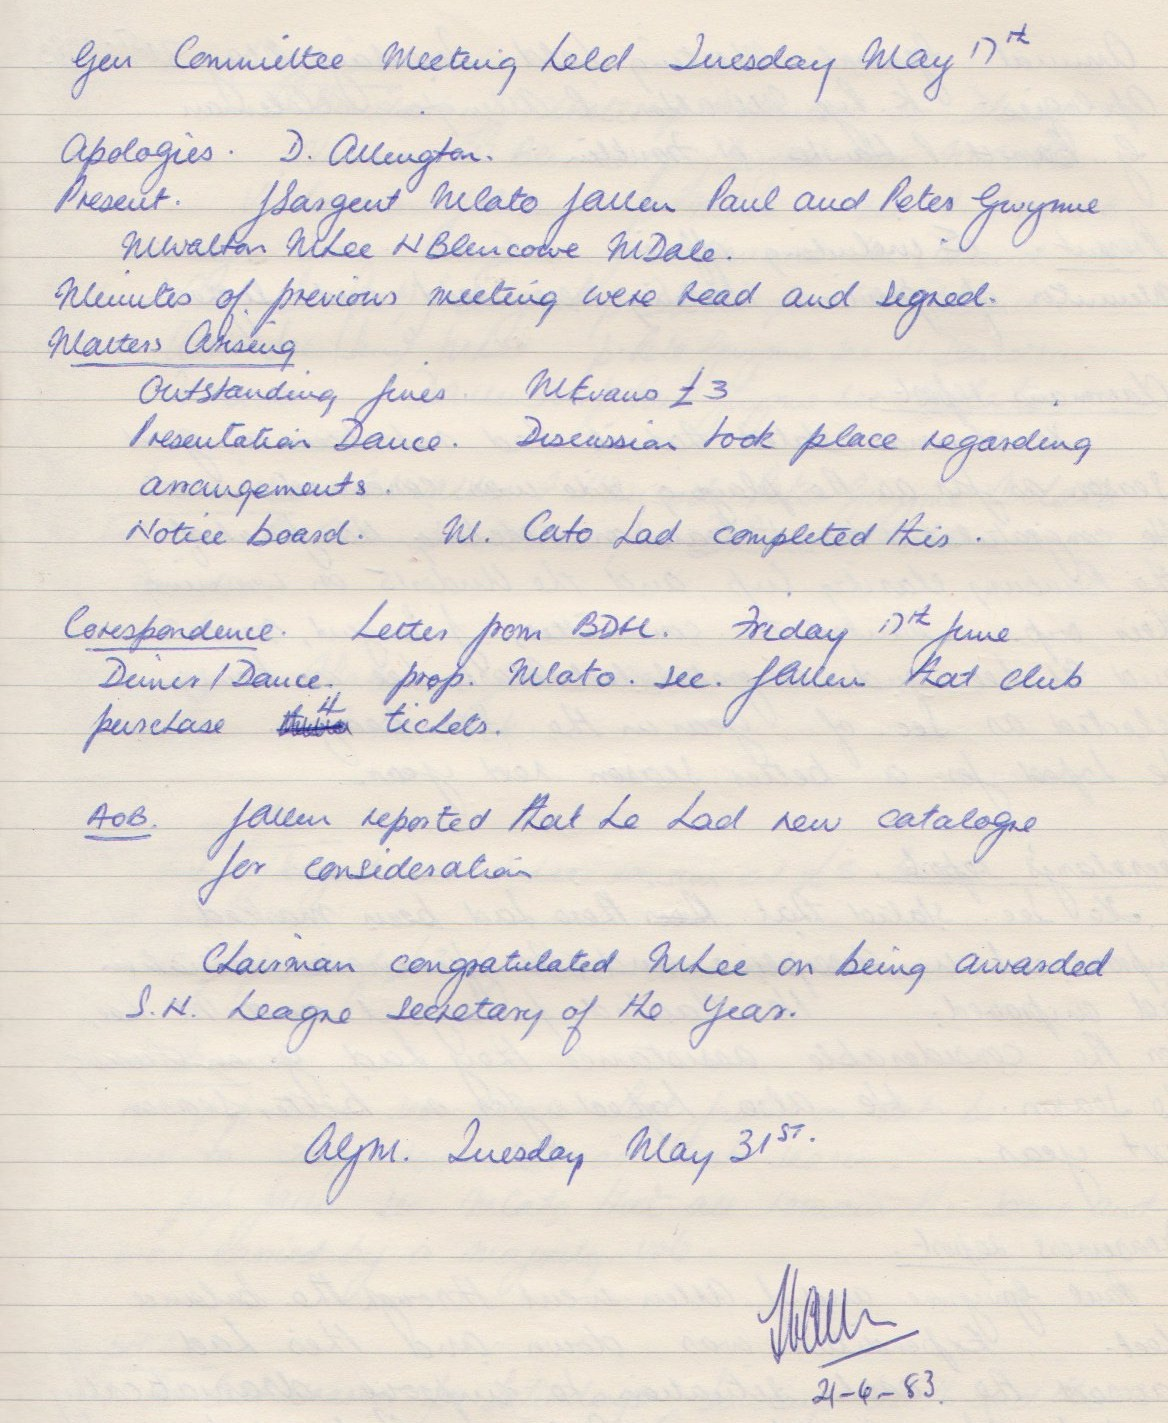 Gen Committee Meeting held Tuesday May 17th
Apologies. D. Allington.
Present. JSargent MCato JAllen Paul and Peter Gwynne
MWalton MLee NBlencowe MDale.
Minutes of previous meeting were read and signed.
Matters Arising
Outstanding fines MEvans £3
Presentation Dance. Discussion took place regarding
arrangements.
Notice board. M. Cato had completed this.
Corespondence. Letter from BDFL. Friday 17th June
Dinner/Dance. prop. MCato. sec. JAllen that club
purchase 4 tickets.
AOB. JAllen reported that he had new catalogue
for consideration
Chairman congratulated MLee on being awarded
S.N. League Secretary of the Year.
AGM. Tuesday May 31ST.
21-6-83.